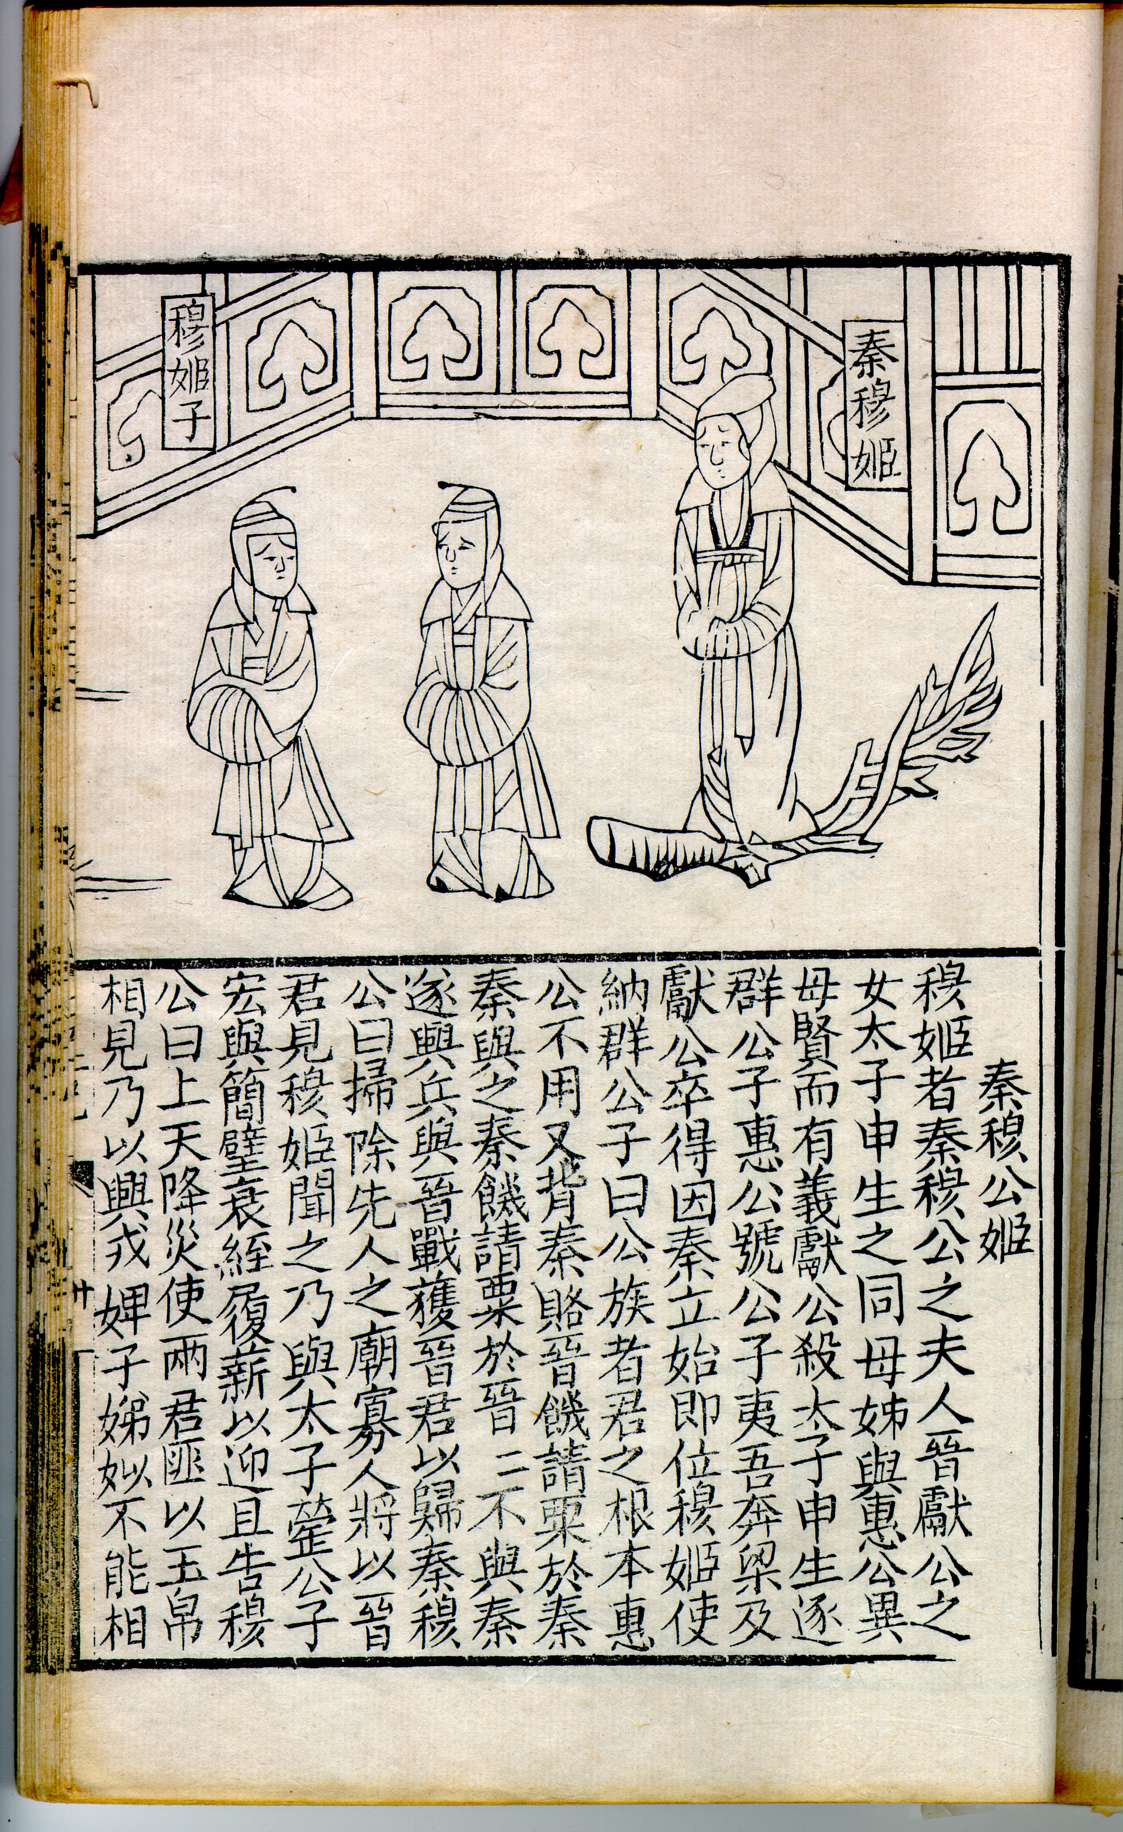 秦穆姬
穆姬子
秦穆公姬
穆姬者秦穆公之夫人晉獻公之
女太子申生之同母姊與惠公異
母賢而有義獻公殺太子申生逐
群公子惠公號公子夷吾奔梁及
獻公卒得因秦立始即位穆姬使
納群公子曰公族者君之根本惠
公不用又背秦賂晉饑請粟於秦
秦與之秦饑請粟於晉二不與秦
遂興兵與晉戰獲晉君以歸秦穆
公曰掃除先人之廟寡人將以晉
君見穆姬聞之乃與太子罃公子
宏與簡璧衰絰履薪以迎且告穆
公曰上天降災使兩君匪以玉帛
相見乃以興戎婢子娣姒不能相